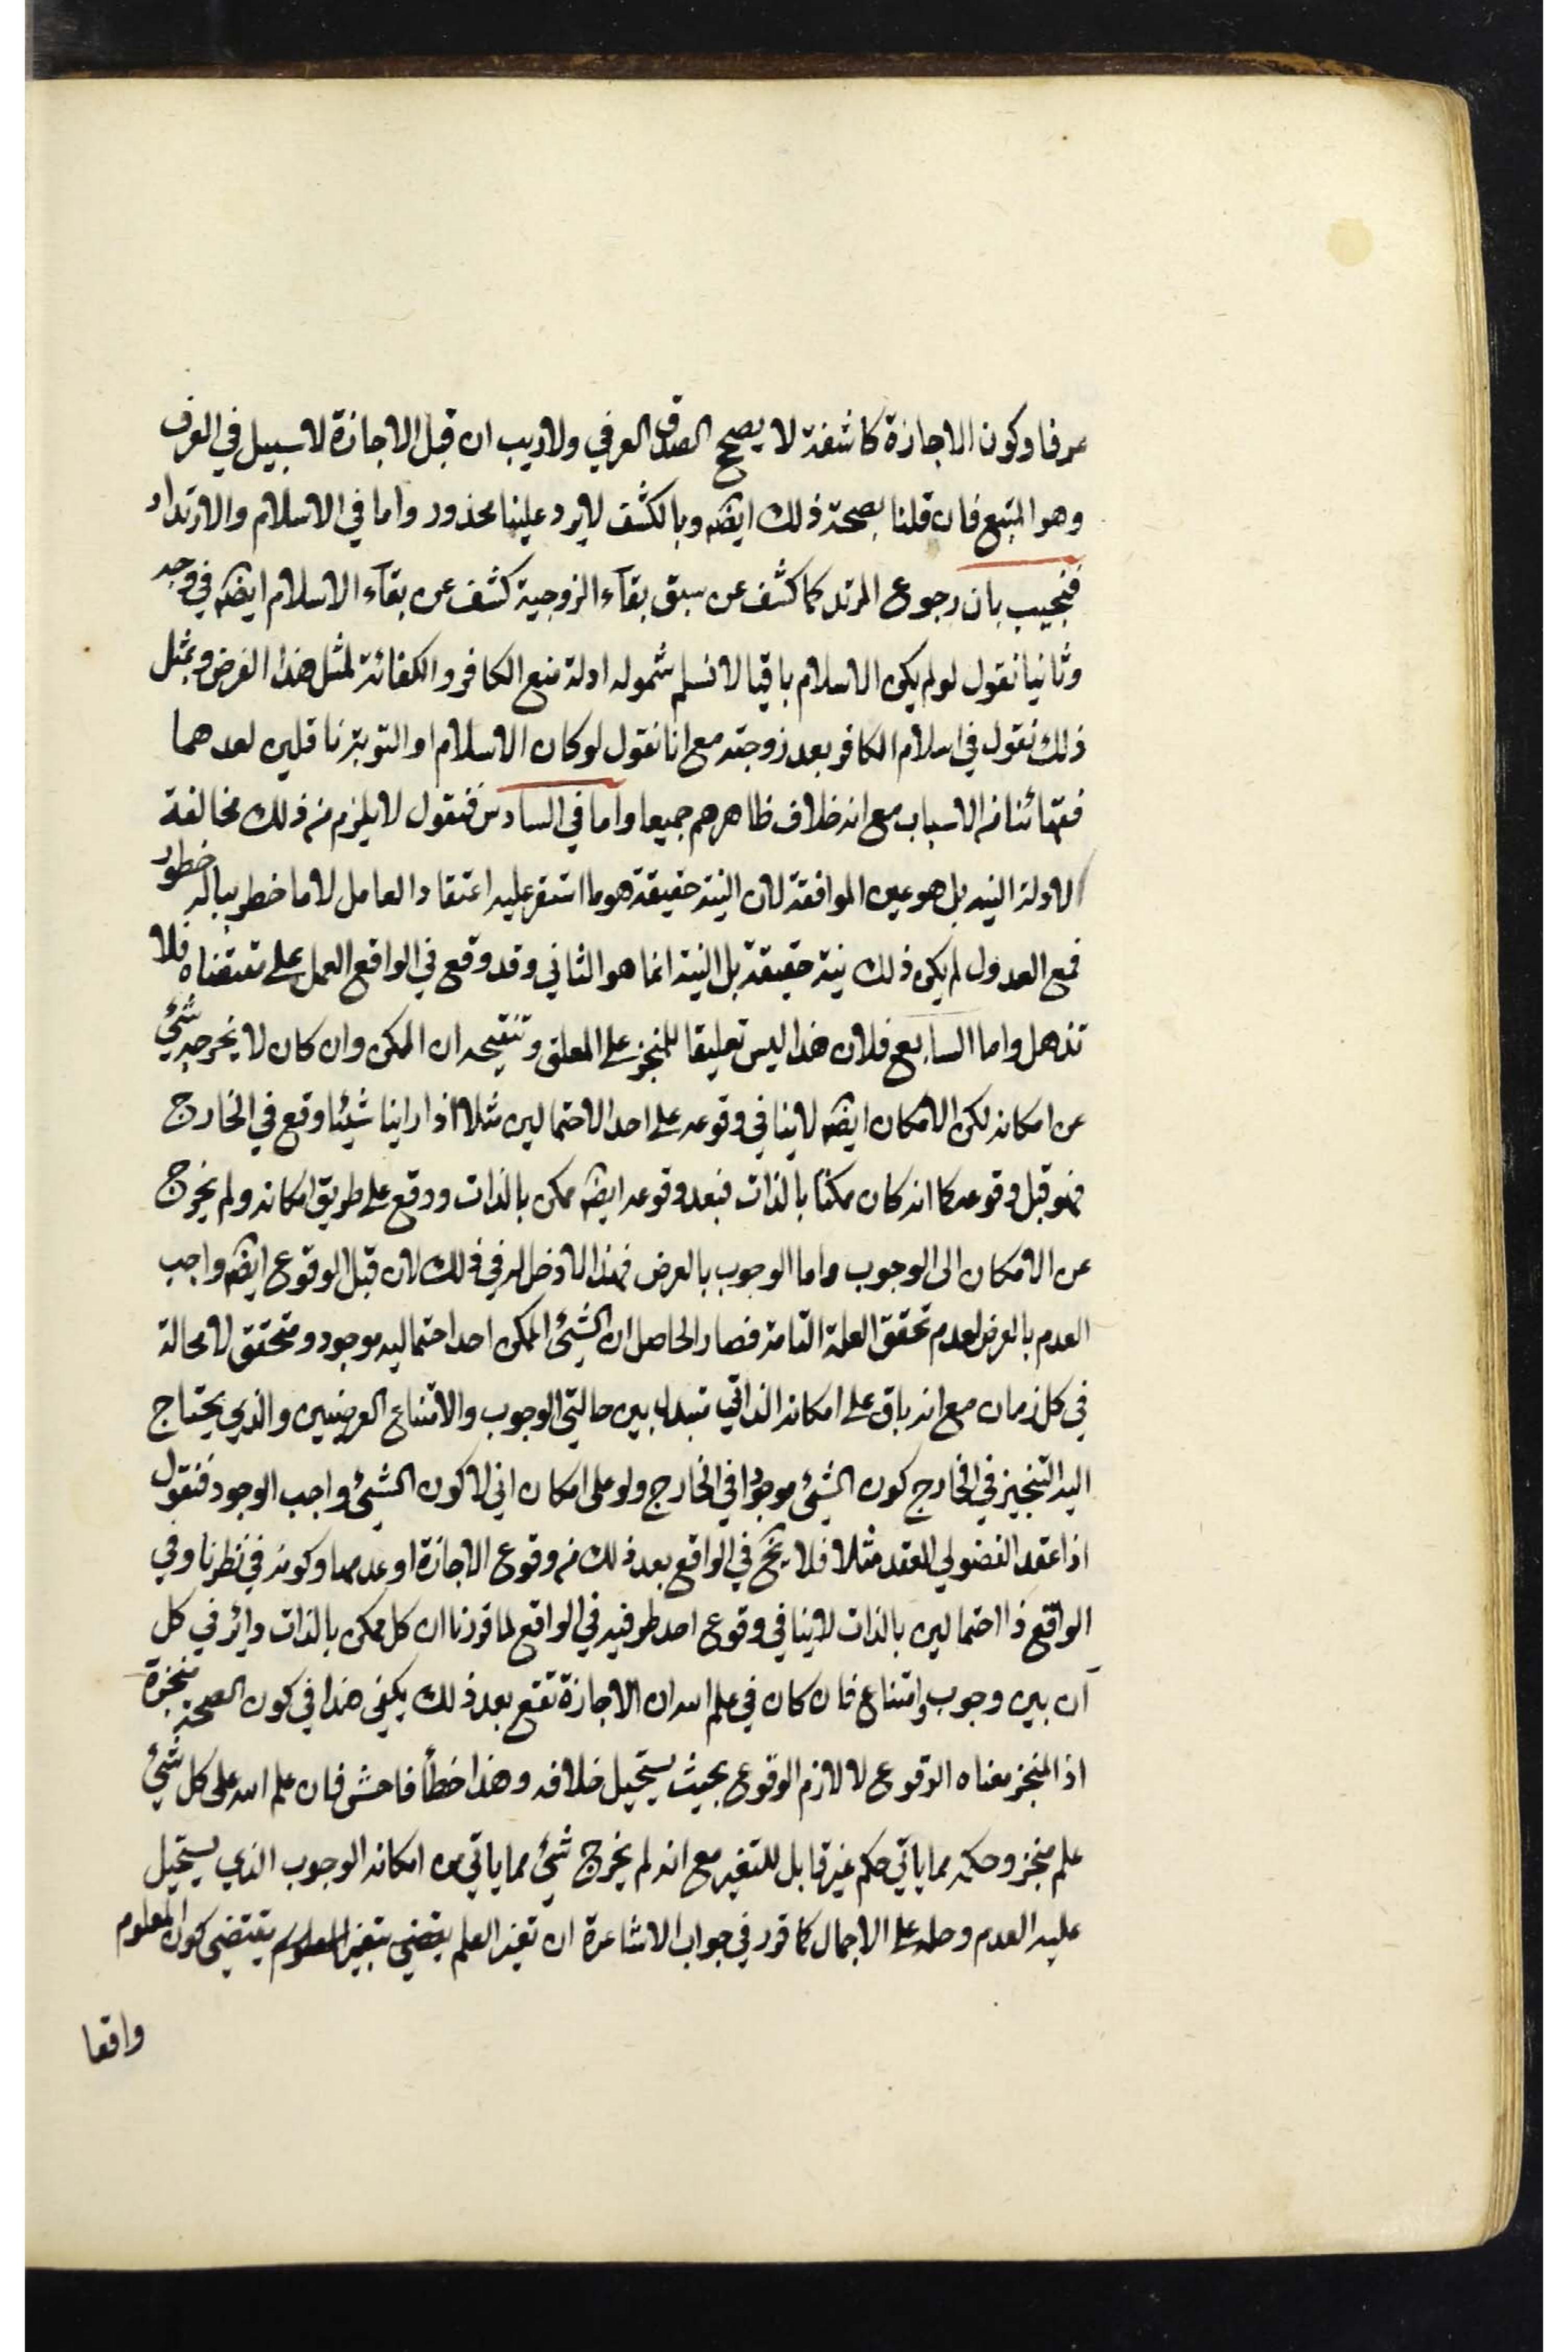 عرفا وكون الاجازة كاشفة لا يصحح الصدق العرفي ولا ريب ان قبل الاجازة لا سبيل في العرف
وهو المتبع فان قلنا بصحة ذلك ايضه وبالكشف لا يرد علينا محذور واما في الاسلام والارتداد
فنجيب بان رجوع المرتد كما كشف عن سبق بقآء الزوجية كشف عن بقآء الاسلام ايضه في وجه
وثانيا نقول لو لم يكن الاسلام باقيا لا نسلم شموله ادلة منع الكافر والكفائة لمثل هذا الفرض وبمثل
ذلك نقول في اسلام الكافر بعد زوجته مع انا نقول لو كان الاسلام او التوبة ناقلين لعدهما
فقهائنا من الاسباب مع انه خلاف ظاهرهم جميعا واما في السادس فنقول لا يلزم من ذلك مخالفة
الاولة النية بل هو عين الموافقة لان النية حقيقة هو ما استقر عليه اعتقاد العامل لا ما خطر بباله خطور
فمع العدول لم يكن ذلك نية حقيقة بل النية انما هو الثاني وقد وقع في الواقع العمل على مقتضاه فلا
تذهل واما السابع فلان هذا ليس تعليقا للمنجز على المعلق وتنقيحه ان الممكن وان كان لا يخرجه شيئ
عن امكانه لكن الامكان ايضه لا ينافي وقوعه على احد الاحتمالين مثلا اذا راينا شيئا وقع في الخارج
فهو قبل وقوعه كما انه كان ممكنا بالذات فبعد وقوعه ايضه ممكن بالذات ووقع على طريق امكانه ولم يخرج
عن الامكان الى الوجوب واما الوجوب بالعرض فهذا لا دخل له في ذلك لان قبل الوقوع ايضه واجب
العدم بالعرض لعدم تحقق العلة التامة فصار الحاصل ان الشيئ الممكن احد احتماليه موجود ومتحقق لا محالة
في كل زمان مع انه باق على امكانه الذاتي تبدله بين حالتي الوجوب والامتناع العرضيين والذي يحتاج
اليه التنجيز في الخارج كون الشيئ موجودا في الخارج ولو على امكان اني لا كون الشيئ واجب الوجود فنقول
اذا عقد الفضولي العقد مثلا فلا يخ في الواقع بعد ذلك من وقوع الاجازة او عدمها وكونه في نظرنا وفي
الواقع ذا احتمالين بالذات لا ينافي وقوع احد طرفيه في الواقع لما قررنا ان كل ممكن بالذات دائر في كل
آن بين وجوب وامتناع فان كان في علم الله ان الاجازة تقع بعد ذلك يكفي هذا في كون الصحة منجزة
اذ المنجز معناه الوقوع لا لازم الوقوع بحيث يستحيل خلافه وهذا خطأ فاحش فان علم الله على كل شيئ
علم منجز وحكمه مما ياتي حكم غير قابل للتغير مع انه لم يخرج شيئ مما ياتي من امكانه الوجوب الذي يستحيل
عليه العدم وحله على الاجمال كما قرر في جواب الاشاعرة ان تغير العلم يقضي بتغير المعلوم يقتضي كون المعلوم
واقعا